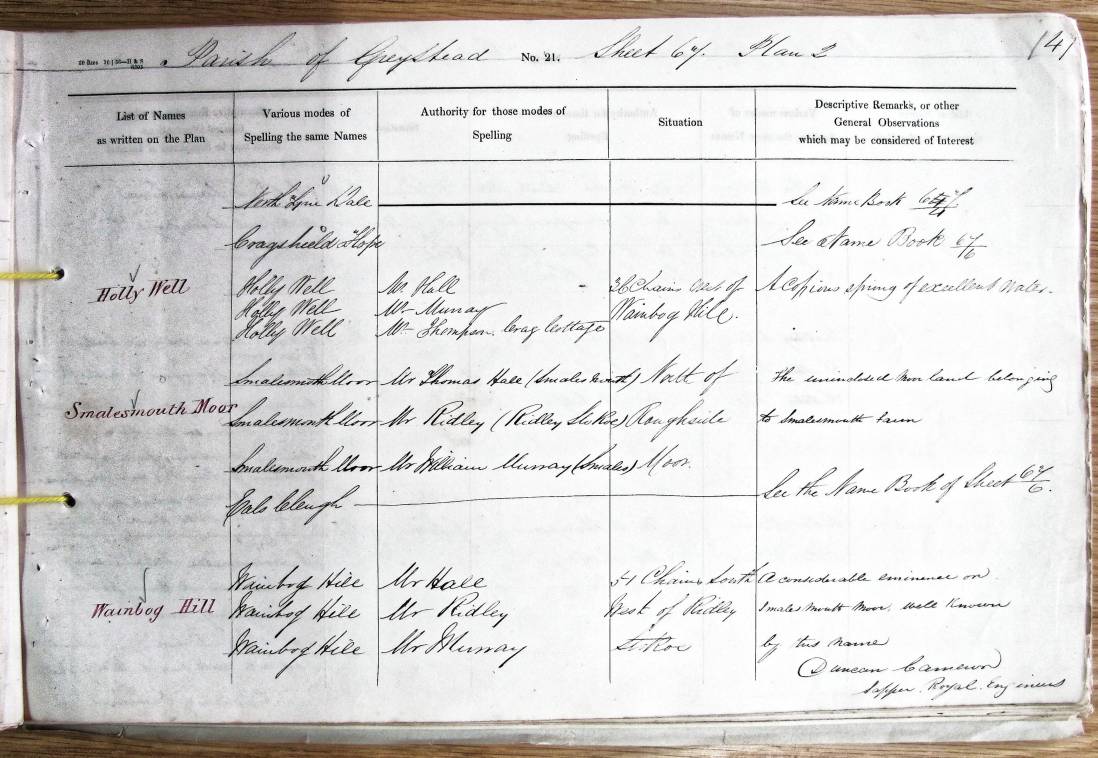 Parish of Greystead No. 21. Sheet 67. Plan 2
List of Names
as written on the Plan
Various modes of
Spelling the same Names
Authority for those modes of
Spelling
Situation
Descriptive Remarks, or other
General Observations
which may be considered of Interest
North Tyne Dale See Name Book
Cragshield Hope See Name Book 67/6
Holly Well Holly Well Mr Hall 36 Chains of A copious spring of excellent water.
Holly Well Mr Murray Wainbog Hill.
Holly Well Mr Thompson Crag Cottage
Smalesmouth Moor Mr Thomas Hall (Smalesmouth) North of The uninclosed Moorland belonging
Smalesmouth Moor Smalesmouth Moor Mr Ridley (Ridley Stokoe) Roughside to Smalesmouth farm
Smalesmouth Moor Mr William Murray (Smales) Moor.
Eals Cleugh See the Name Book of Sheet 67/6.
Wainbog Hill Mr Hall 51 Chains South A considerable eminence on
Wainbog Hill Wainbog Hill Mr Ridley West of Ridley Smalesmouth Moor, well known
Wainbog Hill Mr Murray Stokoe by this name
Duncan Cameron
Sapper. Royal. Engineers